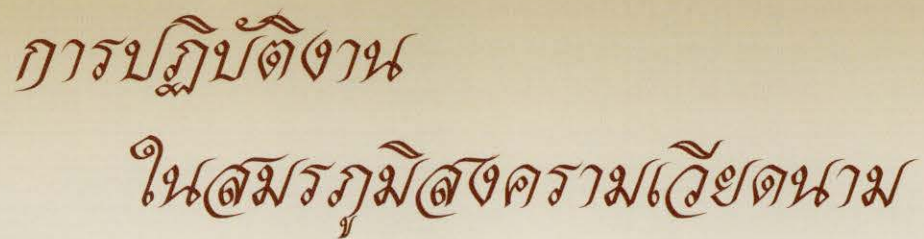 การปฏิบัติงาน
ในสมรภูมิสงครามเวียดนาม